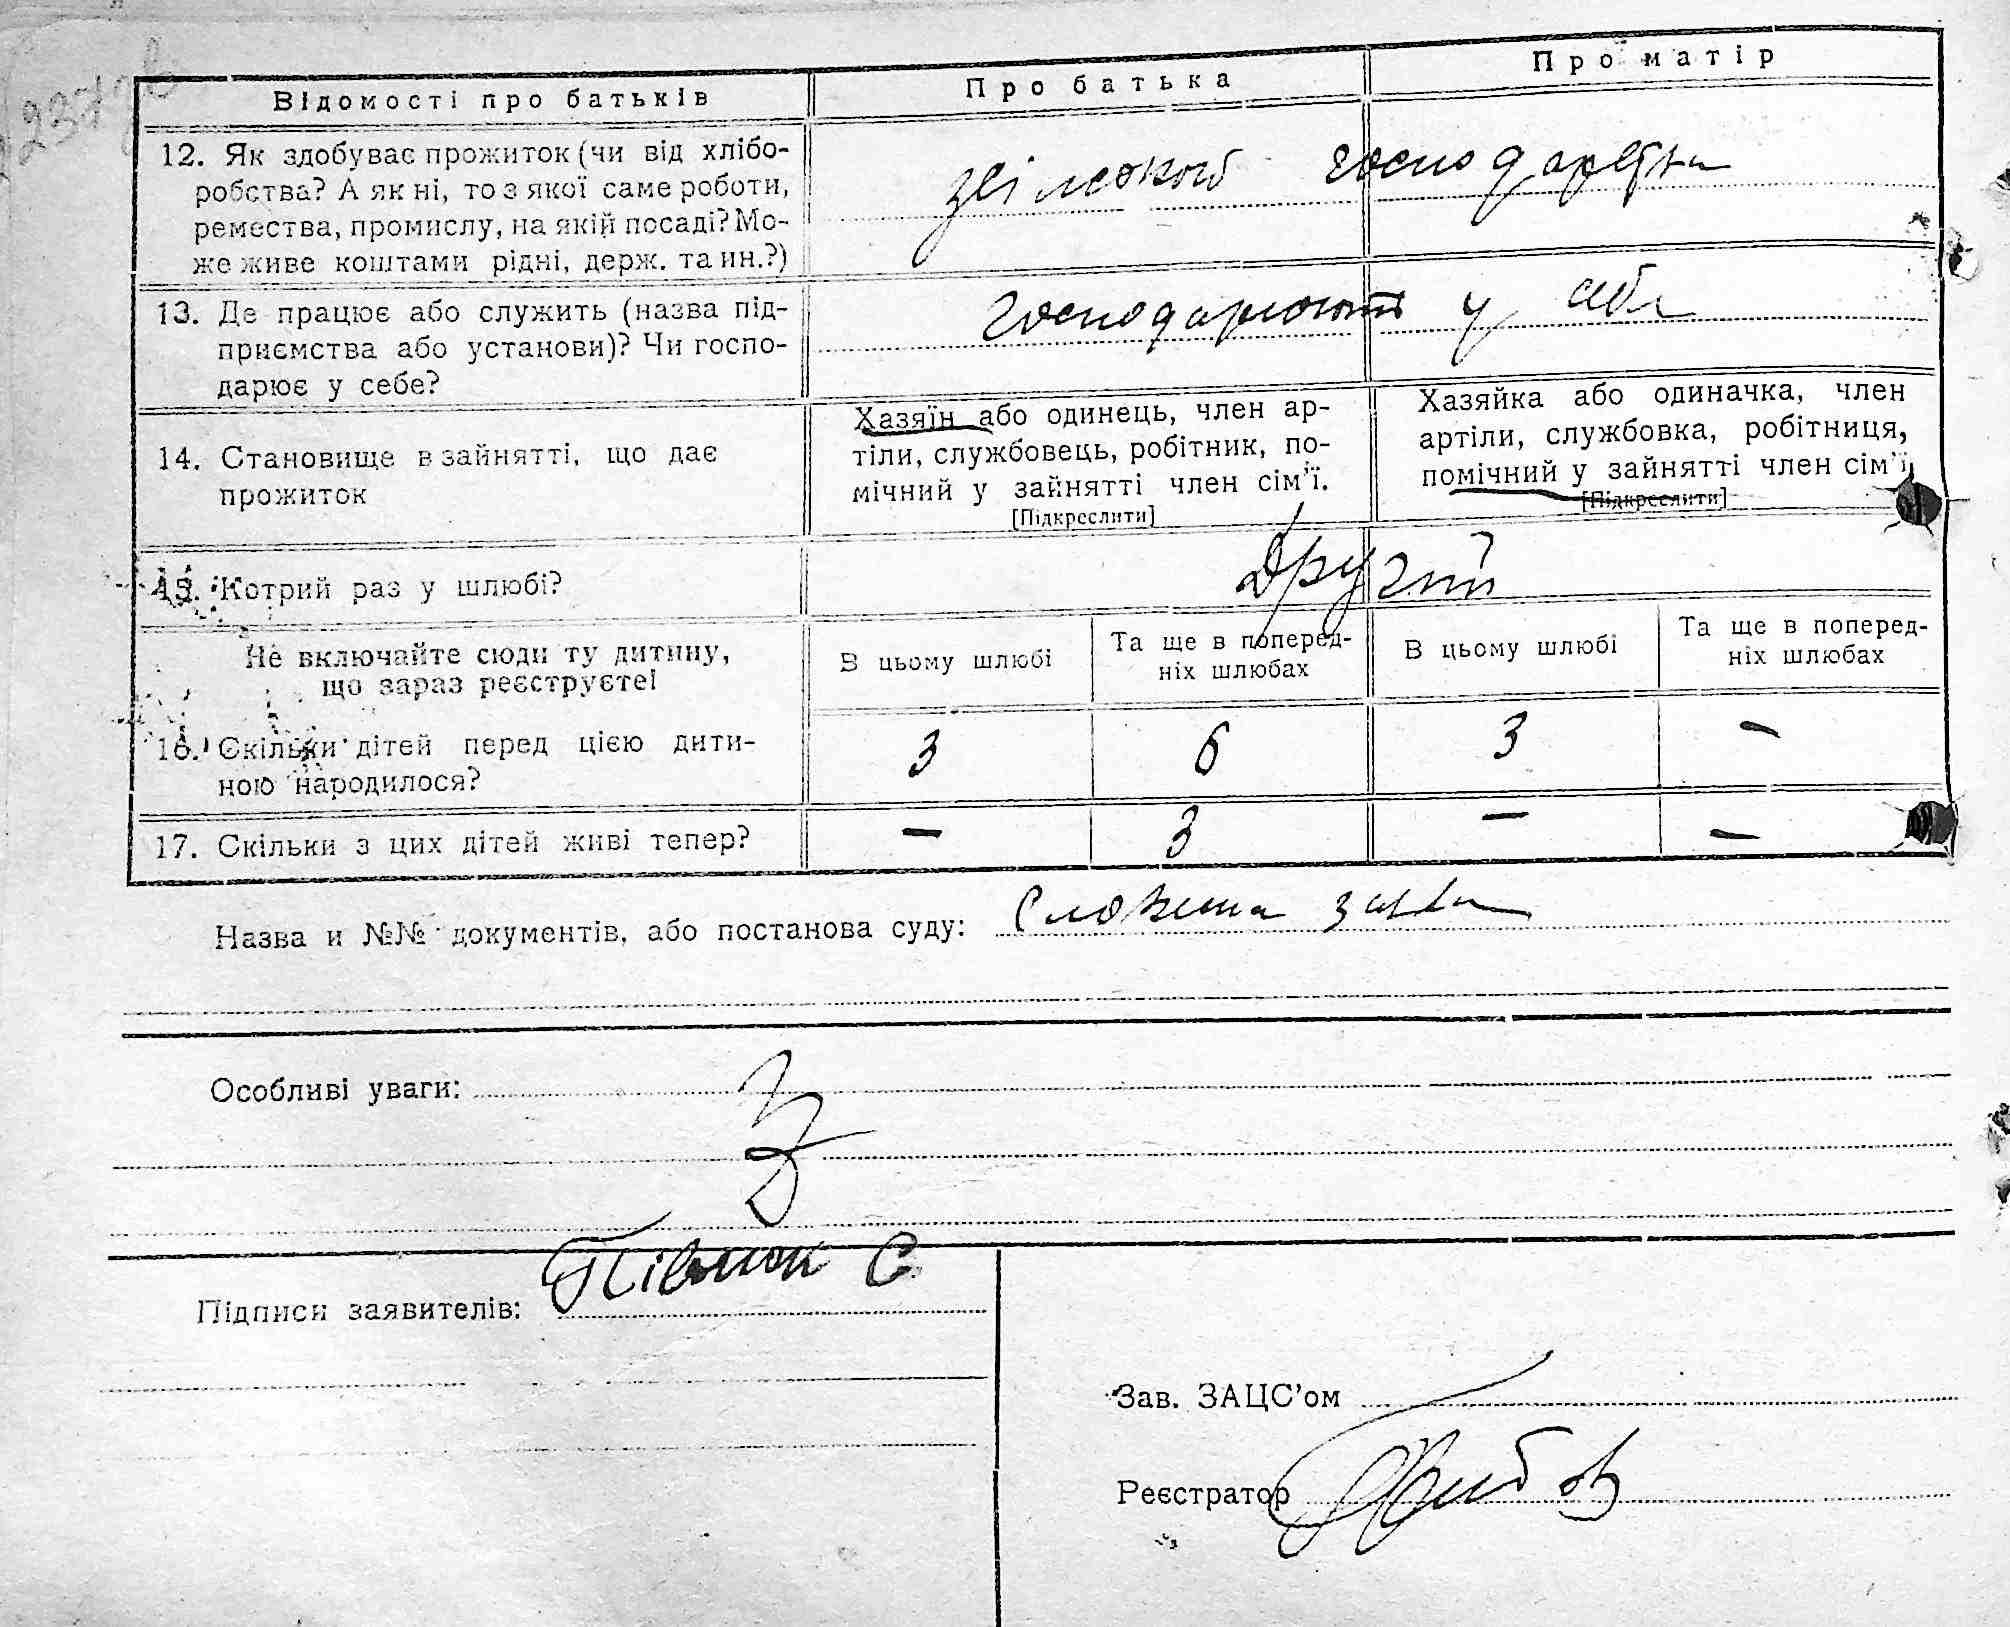 Відомості про батьків
Про батька
Про матір
12. Як здобуває прожиток (чи від хлібо-
робства? А як ні, то з якої саме роботи,
ремества, промислу, на якій посаді? Мо-
же живе коштами рідні, держ. та ин.?)
господарства
13. Де працює або служить (назва під-
приємства або установи)? Чи госпо-
дарює у себе?
господарюють у себе
14. Становище в зайнятті, що дає
прожиток
Хазяїн або одинець, член ар-
тіли, службовець, робітник, по-
мічний у зайнятті член сім'ї.
[Підкреслити]
Хазяйка або одиначка, член
артіли, службовка, робітниця,
помічний у зайнятті член сім'ї
[Підкреслити]
15. Котрий раз у шлюбі?
Другий
Не включайте сюди ту дитину,
що зараз реєструєте!
В цьому шлюбі
Та ще в поперед-
ніх шлюбах
В цьому шлюбі
Та ще в поперед-
ніх шлюбах
16. Скільки дітей перед цією дити-
ною народилося?
3 6 3 –
17. Скільки з цих дітей живі тепер?
– 3 – –
Назва и №№ документів, або постанова суду: Словесна заява
Особливі уваги:
Підписи заявителів:
Зав. ЗАЦС'ом
Реєстратор